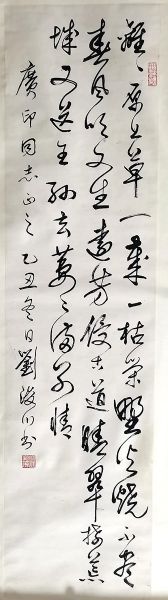 離々原上草一歲一枯榮野火燒不盡
春風吹又生遠芳侵古道晴翠接荒
城又送王孫去萋々滿別情
廣印同志正之乙丑冬日劉川書